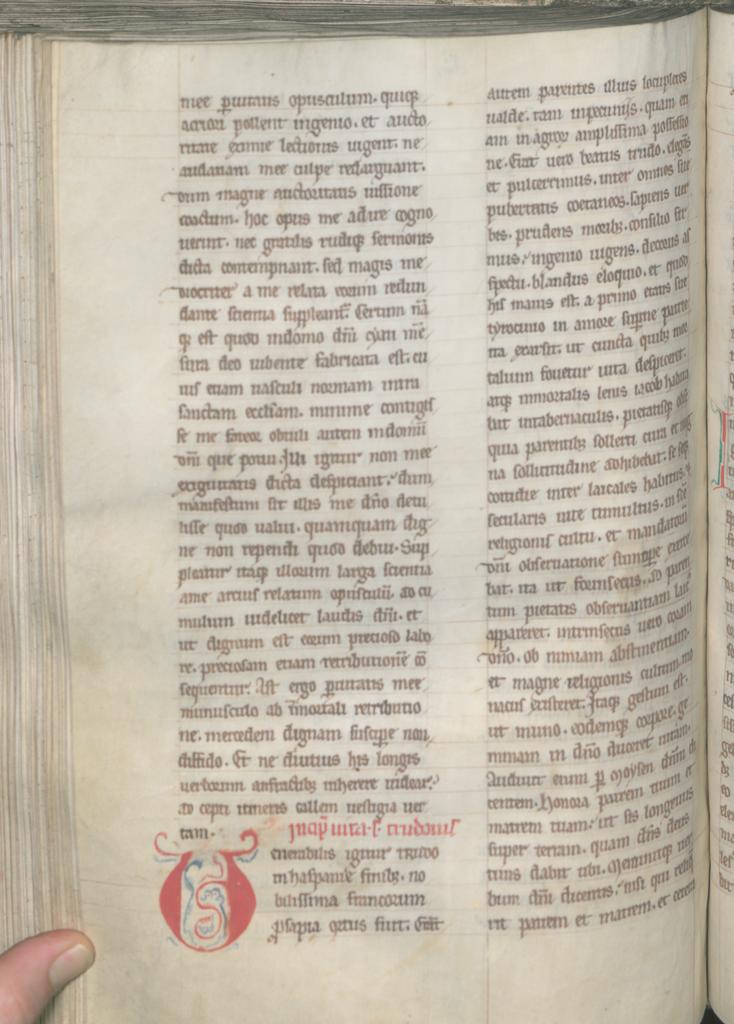 mee p̱uitatis opusculum. quiq;
acriori pollent ingenio. et aucto
ritate eximie lectionis uigent. ne
audatiam mee culpe redarguant.
dum magne auctoritatis iussione
coactum. hoc opus me adire cogno
uerint. nec gracilis rudisq; sermonis
dicta contempnant. sed magis me
diocriter a me relata eorum redun
dante scientia suppleant. Certum nāq;
est quod in domo dn̄i cp̄am mē
sura deo iubente fabricata est. cu
ius etiam nasculi normam intra
sanctam eccl̄iam. minime contigis
se me fateor. obtuli autem in domū
dn̄i que potui. Illi igitur non mee
exiguitatis dicta despiciant. dum
manifestum sit illis me dn̄o detu
lisse quod ualui. quamquam dig
ne non rependi quod debui. Sup
pleatur itaq; illorum larga scientia
a me artius relatum opusculū. ad cu
mulum uidelicet laudis dn̄i. et
ut dignum est eorum precioso labo
re. preciosam etiam retributionē cō
sequentur. Ast ergo p̱uitatis mee
munusculo ab īmortali retributio
ne. mercedem dignam suscip̱e non
diffido. Et ne diutius his longis
uerborum anfractib; inherere uidear.
ad cepti itineris callem uestigia uer
tam. Incip̄ uita .s. trudonis
Venerabilis igitur TRUDO
in haspanie finib;. no
bilissima francorum
p̱sapia ortus fuit. Erāt
autem parentes illius locupletes
ualde. tam in pecunijs. quam eti
am in agrorum amplissima possessio
ne. Erat uero beatus trudo. elegās
et pulcerrimus. inter omnes sue
pubertatis coetaneos. sapiens uer
bis. prudens morib;. consilio fir
mus. ingenio uigens. decorus as
pectu. blandus eloquio. et quod
his maius est. a primo etatis sue
tyrocinio in amore sup̱ne patrie
ita exarsit. ut cuncta quib; mor
talium fouetur uita despiceret.
atq; immortalis lenis iacob habita
bat in tabernaculis. pietatisq;
quia parentib; sollerti cura et mag
na sollicitudine adhibebat. se
cotidie inter laicales habitus. et
secularis uite tumultus. in
religionis cultu. et mandatorū
dn̄i obseruatione stincp̱e exerce
bat. ita ut forinsecus. ad paren
tum pietatis obseruantiam laic
appareret. intrinsecus uero coram
dn̄o. ob nimiam abstinentiam.
et magne religionis cultum. mo
nacus existeret. Itaq; gestum est.
ut in uno. eodemq; corpore. ge
minam in dn̄o duceret uitam.
Audiuit enim p̱ moysen dn̄m di
centem. Honora patrem tuum et
matrem tuam. ut sis longeuus
super terram. quam dn̄s deus
tuus dabit tibi. Meminitq; uer
bum dn̄i dicentis. nisi qui reliq̄
rit patrem et matrem. et cetera